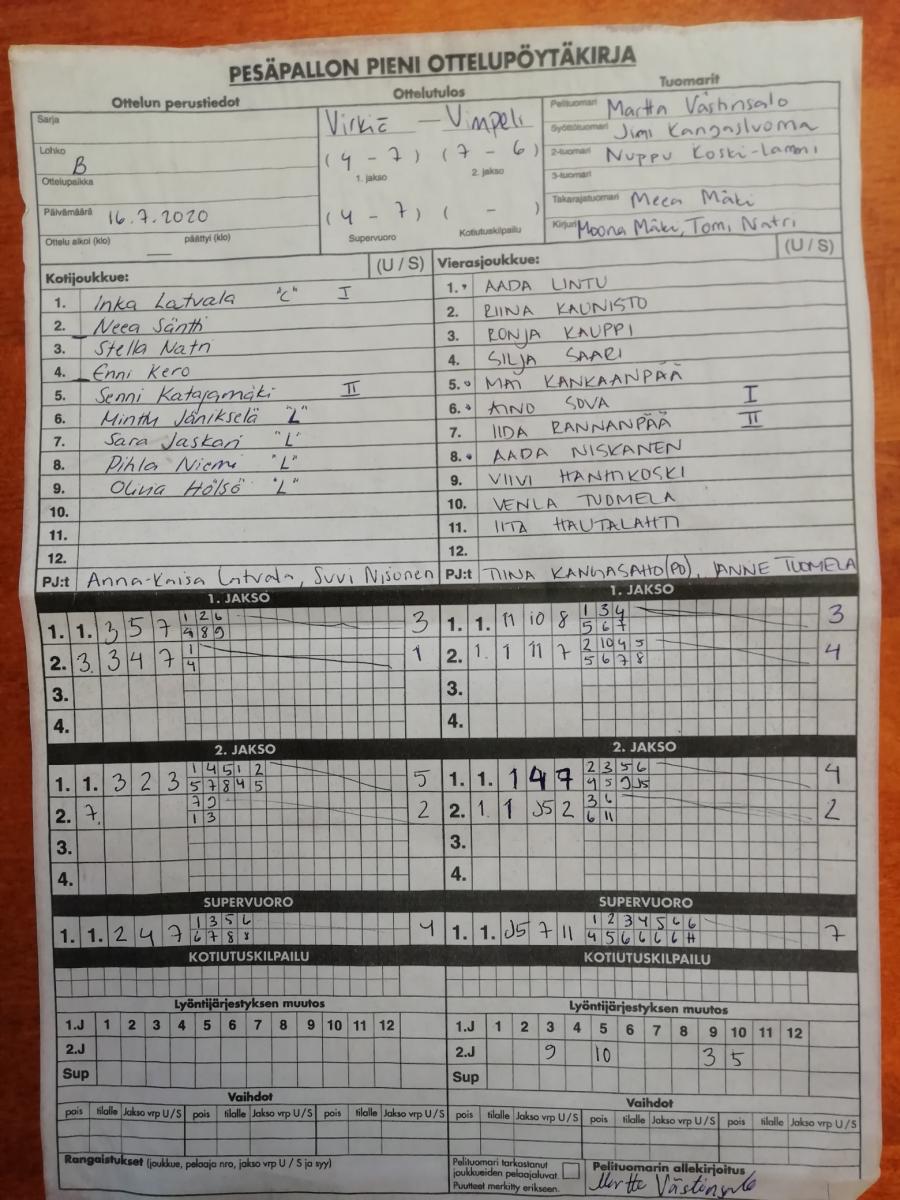 PESÄPALLON PIENI OTTELUPÖYTÄKIRJA
Ottelun perustiedot
Sarja
Lohko B
Ottelupaikka
Päivämäärä 16.7.2020
Ottelu alkoi (klo) — päättyi (klo)
Ottelutulos
Virkiä — Vimpeli
(4 - 7) (7 - 6)
1. jakso 2. jakso
(4 - 7) ( - )
Supervuoro Kotiutuskilpailu
Tuomarit
Pelituomari Martta Västinsalo
Syöttötuomari Jimi Kangasluoma
2-tuomari Nuppu Koski-Lammi
3-tuomari
Takarajatuomari Meea Mäki
Kirjuri Moona Mäki, Tomi Natri
Kotijoukkue: (U / S)
1. Inka Latvala "C" I
2. Neea Säntti
3. Stella Natri
4. Enni Kero
5. Senni Katajamäki II
6. Minttu Jänikselä "L"
7. Sara Jaskari "L"
8. Pihla Niemi "L"
9. Olivia Hölsö "L"
10.
11.
12.
PJ:t Anna-Kaisa Latvala, Suvi Nisonen
Vierasjoukkue: (U / S)
1. AADA LINTU
2. RIINA KAUNISTO
3. RONJA KAUPPI
4. SILJA SAARI
5. MAI KANKAANPÄÄ
6. AINO SOVA I
7. IIDA RANNANPÄÄ II
8. AADA NISKANEN
9. VIIVI HANHIKOSKI
10. VENLA TUOMELA
11. IITA HAUTALAHTI
12.
PJ:t TIINA KANGASAHO(PJ), JANNE TUOMELA
1. JAKSO
1. 1. 3 5 7 1 2 6 3
4 8 9
2. 3. 3 4 7 1 1
4
3.
4.
1. JAKSO
1. 1. 11 10 8 1 3 4 3
5 6 7
2. 1. 1 11 7 2 10 4 5 4
5 6 7 8
3.
4.
2. JAKSO
1. 1. 3 2 3 1 4 5 1 2 5
5 7 8 4 5
2. 7. 7 9 2
1 3
3.
4.
2. JAKSO
1. 1. 1 4 7 2 3 5 6 4
4 5 9 J5
2. 1. 1 J5 2 3 6 2
6 11
3.
4.
SUPERVUORO
1. 1. 2 4 7 1 3 5 6 4
6 7 8 8
SUPERVUORO
1. 1. J5 7 11 1 2 3 4 5 6 6 7
4 5 6 6 6 6
KOTIUTUSKILPAILU
KOTIUTUSKILPAILU
Lyöntijärjestyksen muutos
1.J 1 2 3 4 5 6 7 8 9 10 11 12
2.J
Sup
Lyöntijärjestyksen muutos
1.J 1 2 3 4 5 6 7 8 9 10 11 12
2.J 9 10 3 5
Sup
Vaihdot
pois tilalle Jakso vrp U / S pois tilalle Jakso vrp U / S pois tilalle Jakso vrp U / S
Vaihdot
pois tilalle Jakso vrp U / S pois tilalle Jakso vrp U / S pois tilalle Jakso vrp U / S
Rangaistukset (joukkue, pelaaja nro, jakso vrp U / S ja syy)
Pelituomari tarkastanut
joukkueiden pelaajaluvat.
Puutteet merkitty erikseen.
Pelituomarin allekirjoitus
Martta Västinsalo